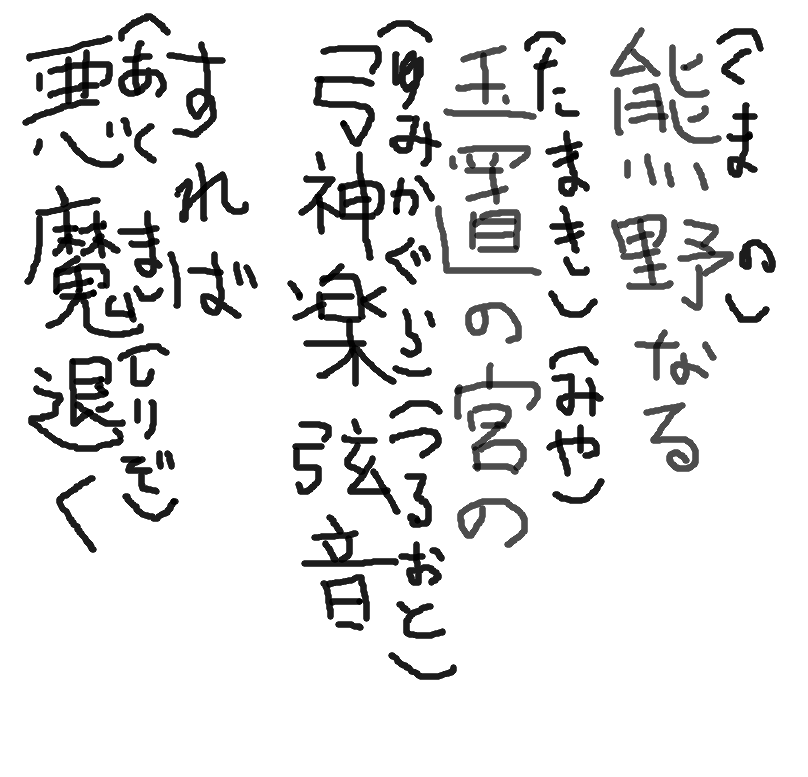 （くまの）
熊野なる
（たまき）（みや）
玉置の宮の
（ゆみかぐら）（つるおと）
弓神楽弦音
すれば
（あくま）（しりぞ）
悪魔退く